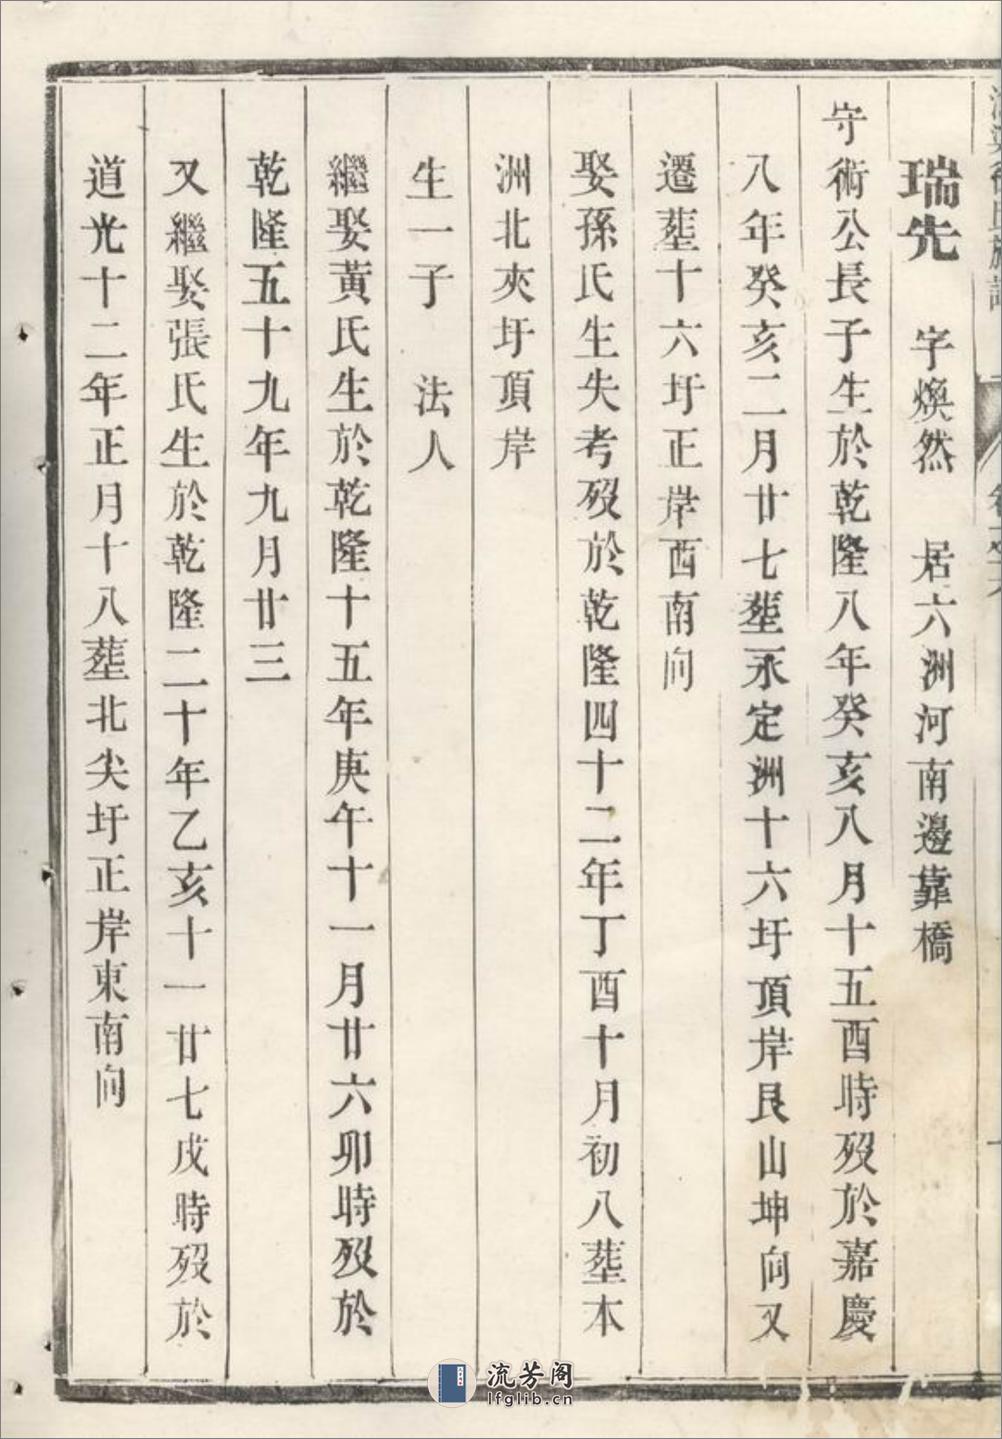 瑞先 字煥然 居六洲河南邊靠橋
守術公長子生於乾隆八年癸亥八月十五酉時歿於嘉慶
八年癸亥二月廿七塟永定洲十六圩頂岸艮山坤向又
遷塟十六圩正岸酉南向
娶孫氏生失考歿於乾隆四十二年丁酉十月初八塟本
洲北夾圩頂岸
生一子 法人
繼娶黃氏生於乾隆十五年庚午十一月廿六卯時歿於
乾隆五十九年九月廿三
又繼娶張氏生於乾隆二十年乙亥十一廿七戌時歿於
道光十二年正月十八塟北尖圩正岸東南向
流芳阁
lfglib.cn